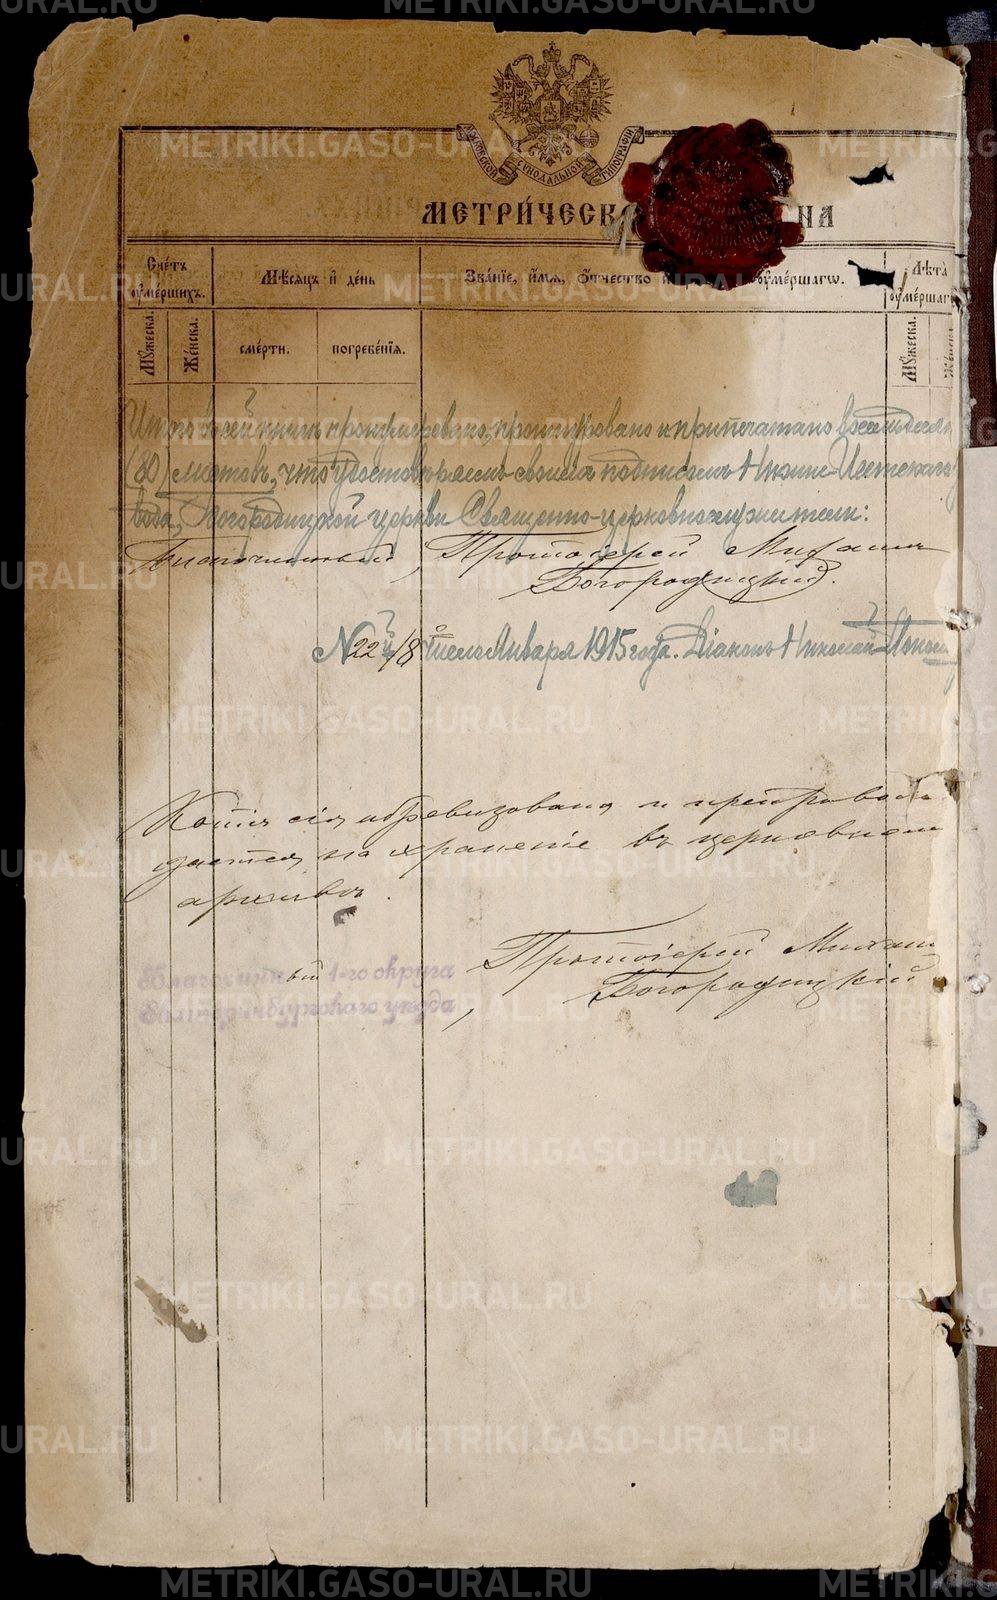 МОСКОВСКОЙ СѴНОДАЛЬНОЙ ТИПОГРАФІИ
МЕТРИ́ЧЕСК НА
Сче́тъ ᲂу҆ме́ршихъ.
Мѣсяцъ и҆ де́нь
Зва́нїе, и҆́мя, ѻ҆́тчество и҆ ᲂу҆ме́ршагѡ.
Лѣ́та ᲂу҆ме́ршаг
Мꙋ́жеска.
Же́нска.
сме́рти.
погребе́нїя.
Мꙋ́жеска.
Же́нска
Итого въ сей книгѣ пронумеровано, прошнуровано и припечатано восемьдесятъ
(80) листовъ, что удостовѣряемъ своимъ подписомъ Нижне-Исетскаго
вода, Богородицкой церкви Священно-церковнослужители:
Благочинный, Протоіерей Михаилъ
Богородицкій.
№ 22 18 числа Января 1915 года. Діаконъ Николай
Книга сія обревизована и препровож-
дается на храненіе въ церковномъ
архивѣ.
Протоіерей Михаил
Богородицкій
Благочинный 1-го округа
Екатеринбургскаго уѣзда
METRIKI.GASO-URAL.RU